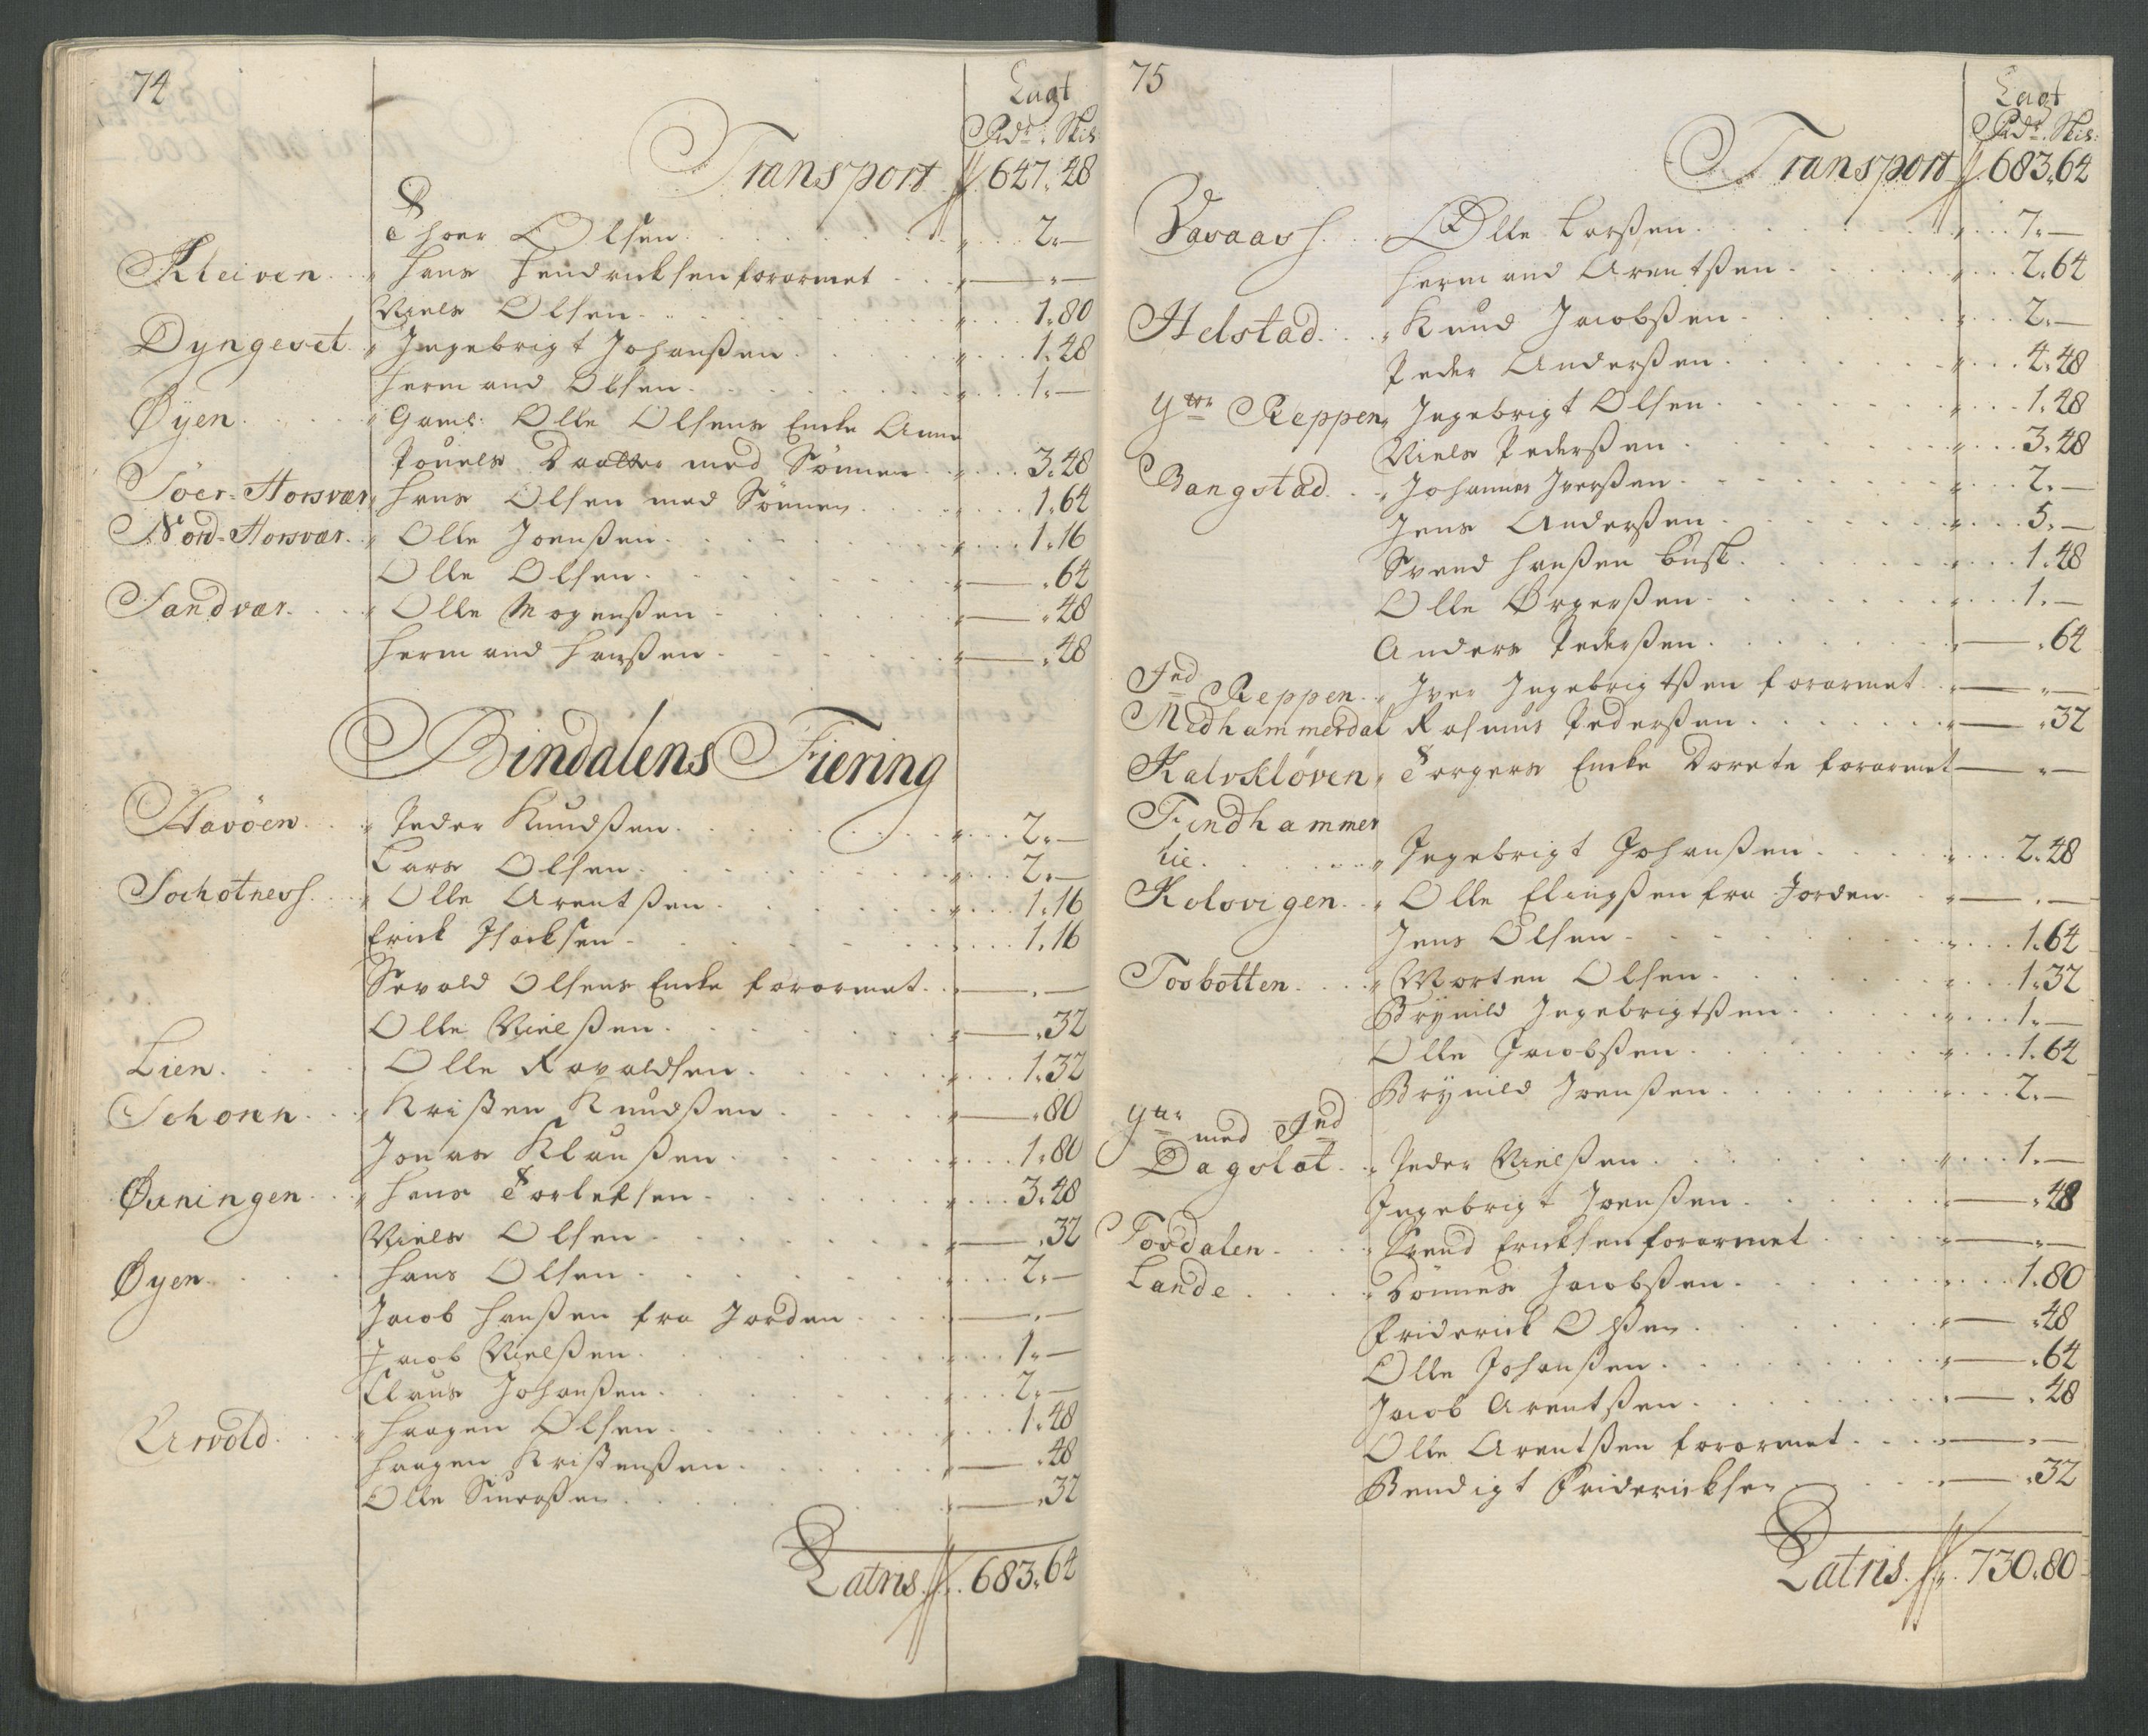 74
Lagt
Rdr. Skis
Transport 647. 48
Thoer Olsen 2. —
Kleiven Hans Hendricksen forarmet — " —
Niels Olsen 1. 80
Dyngeset Ingebrigt Johanßen 1. 48
Hermand Olsen 1. —
Øyen Gaml: Olle Olsens Encke Anne
Povels Daatter med Sönnen 3. 48
Söer-Horsvær Hans Olsen med Sönnen 1. 64
Nord-Horsvær Olle Joenßen 1. 16
Olle Olsen — . 64
Sandvær Olle Mogenßen — . 48
Hermand Hanßen — . 48
Bindalens Fiering
Havöen Peder Knudßen 2. —
Lars Olsen 2. —
Schotnesh Olle Arentßen 1. 16
Erick Isacksen 1. 16
Sevald Olsens Encke forarmet — . —
Olle Nielßen — . 32
Lien Olle Ravaldsen 1. 32
Schorn Krißen Knudßen — . 80
Jonas Klaußen 1. 80
Øxningen Hans Torlefsen 3. 48
Niels Olsen — . 32
Øyen Hans Olsen 2. —
Jacob Hanßen fra Jorden — . —
Jacob Nielßen 1. —
Claus Johanßen 2. —
Arvold Haagen Olsen 1. 48
Haagen Kristenßen — . 48
Olle Siverßen — . 32
Latris 683. 64
75
Lagt
Rdr. Skis:
Transport 683. 64
Vasaash Olle Larßen 7. —
Hermand Arentßen 2. 64
Helstad Knud Jacobßen 2. —
Peder Anderßen 4. 48
Yttr Reppen Ingebrigt Olsen 1. 48
Niels Pederßen 3. 48
Bangstad Johannes Iverßen 2. —
Jens Anderßen 5. —
Svend Hanßen Busk 1. 48
OlleØrgerßen 1. —
Anders Pederßen — . 64
Ind Reppen Iver Ingebrigtßen forarmet — " —
Medhammerdal Rasmus Pederßen — . 32
Kalvkløven Torgers Encke Dorete forarmet — " —
Tindhammer
lie Ingebrigt Johanßen 2. 48
Kolsvigen Olle Elingßen fra Jorden — . —
Jens Olsen 1. 64
Tosbotten Morten Olsen 1. 32
Brynild Ingebrigtßen 1. —
Olle Jacobßen 1. 64
Brynild Joenßen 2. —
Yttr med Ind
Dagslot Peder Nielßen 1. —
Ingebrigt Joenßen — . 48
Tosdalen Svend Ericksen forarmet — " —
Lande Tönnes Jacobßen 1. 80
Friderick Olßen — . 48
Olle Johanßen — . 64
Jacob Arentßen — . 48
Olle Arentßen forarmet — . —
Bendigt Fridericksen — . 32
Latris 730. 80